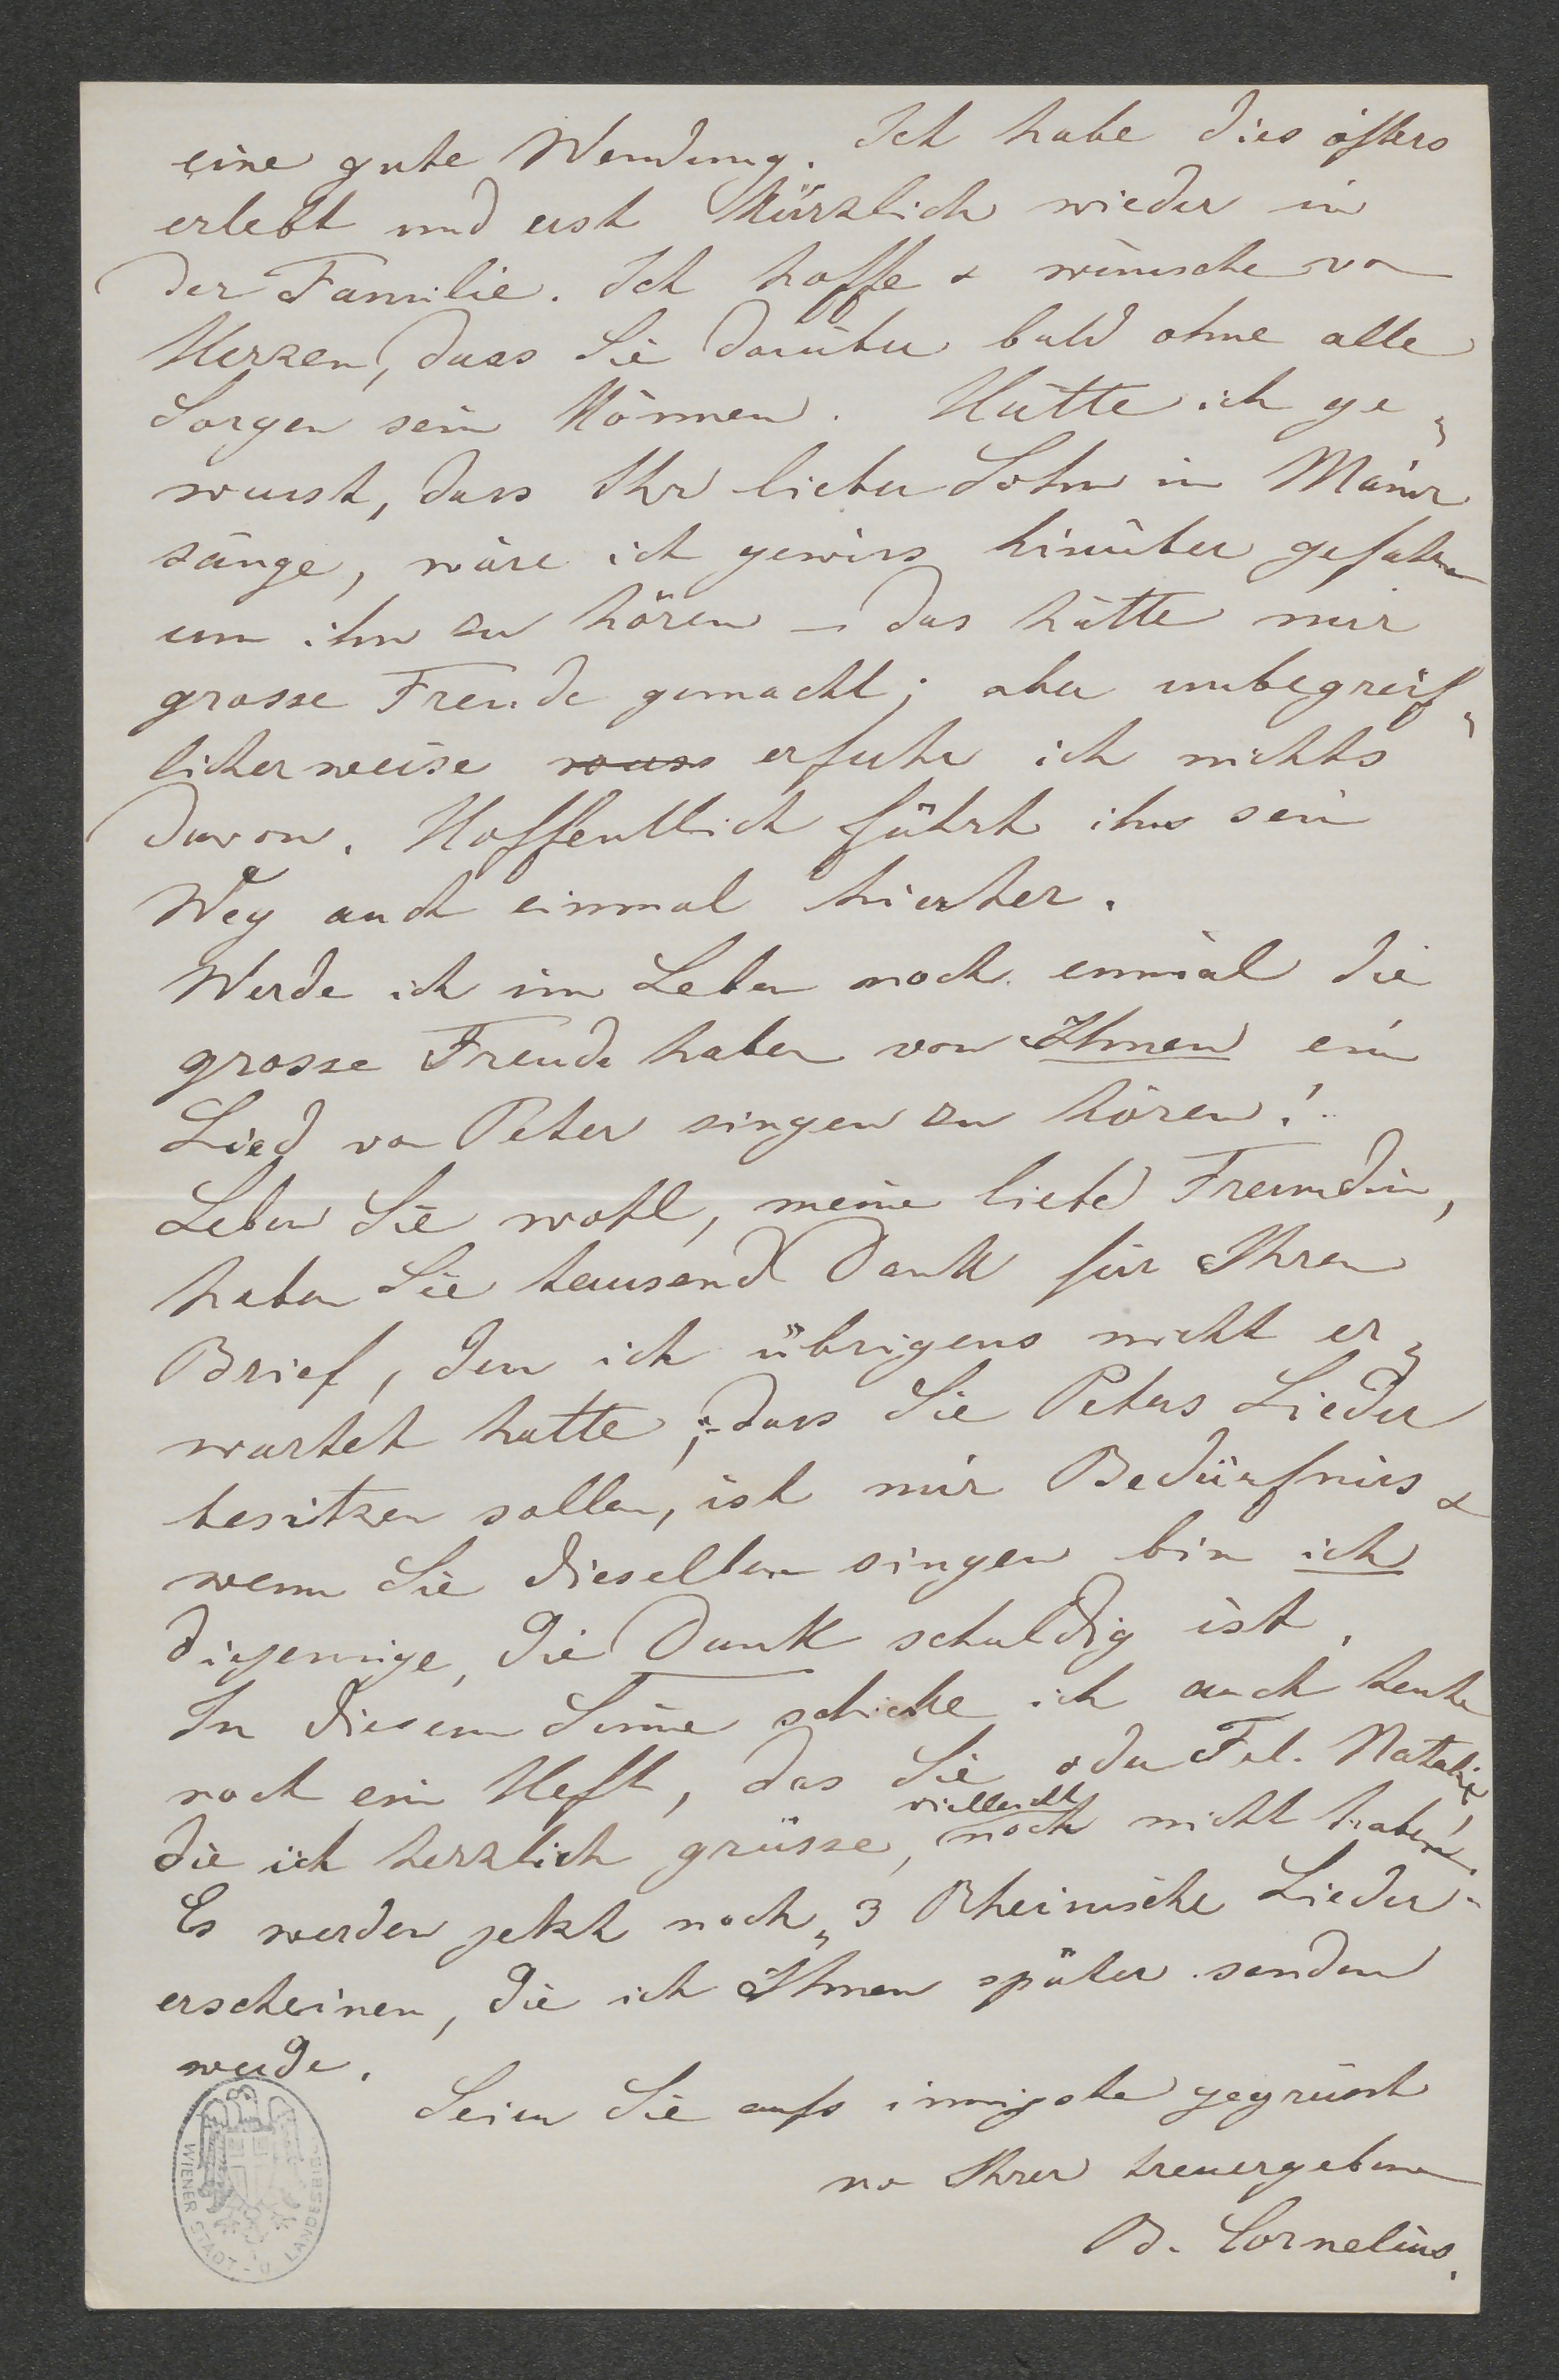 eine gute Wendung. Ich habe dies öfters
erlebt und erst kürzlich wieder in
der Familie. Ich hoffe & wünsche von
Herzen, dass Sie darüber bald ohne alle
Sorgen sein können. Hätte ich ge-
wusst, dass Ihr lieber Sohn in Mainz
sänge, wäre ich gewiss hinüber gefahren
um ihn zu hören – das hätte mir
grosse Freude gemacht; aber unbegreif-
licherweise wuss erfuhr ich nichts
davon. Hoffentlich führt ihn sein
Weg auch einmal hierher.
Werde ich im Leben noch einmal die
grosse Freude haben von Ihnen ein
Lied von Peter singen zu hören!
Leben Sie wohl, meine liebe Freundin,
haben Sie tausend Dank für Ihren
Brief, den ich übrigens nicht er-
wartet hatte; dass Sie Peters Lieder
besitzen sollen, ist mir Bedürfniss &
wenn Sie dieselben singen bin ich
diejenige, die Dank schuldig ist.
In diesem Sinne schicke ich auch heute
noch ein Heft, das Sie oder Frl. Natalie,
vielleicht
die ich herzlich grüsse, noch nicht haben!
Es werden jetzt noch „3 Rheinische Lieder"
erscheinen, die ich Ihnen später senden
werde.
Seien Sie aufs innigste gegrüsst
von Ihrer treuergebenen
B. Cornelius.
WIENER STADT- U LANDESBIBL